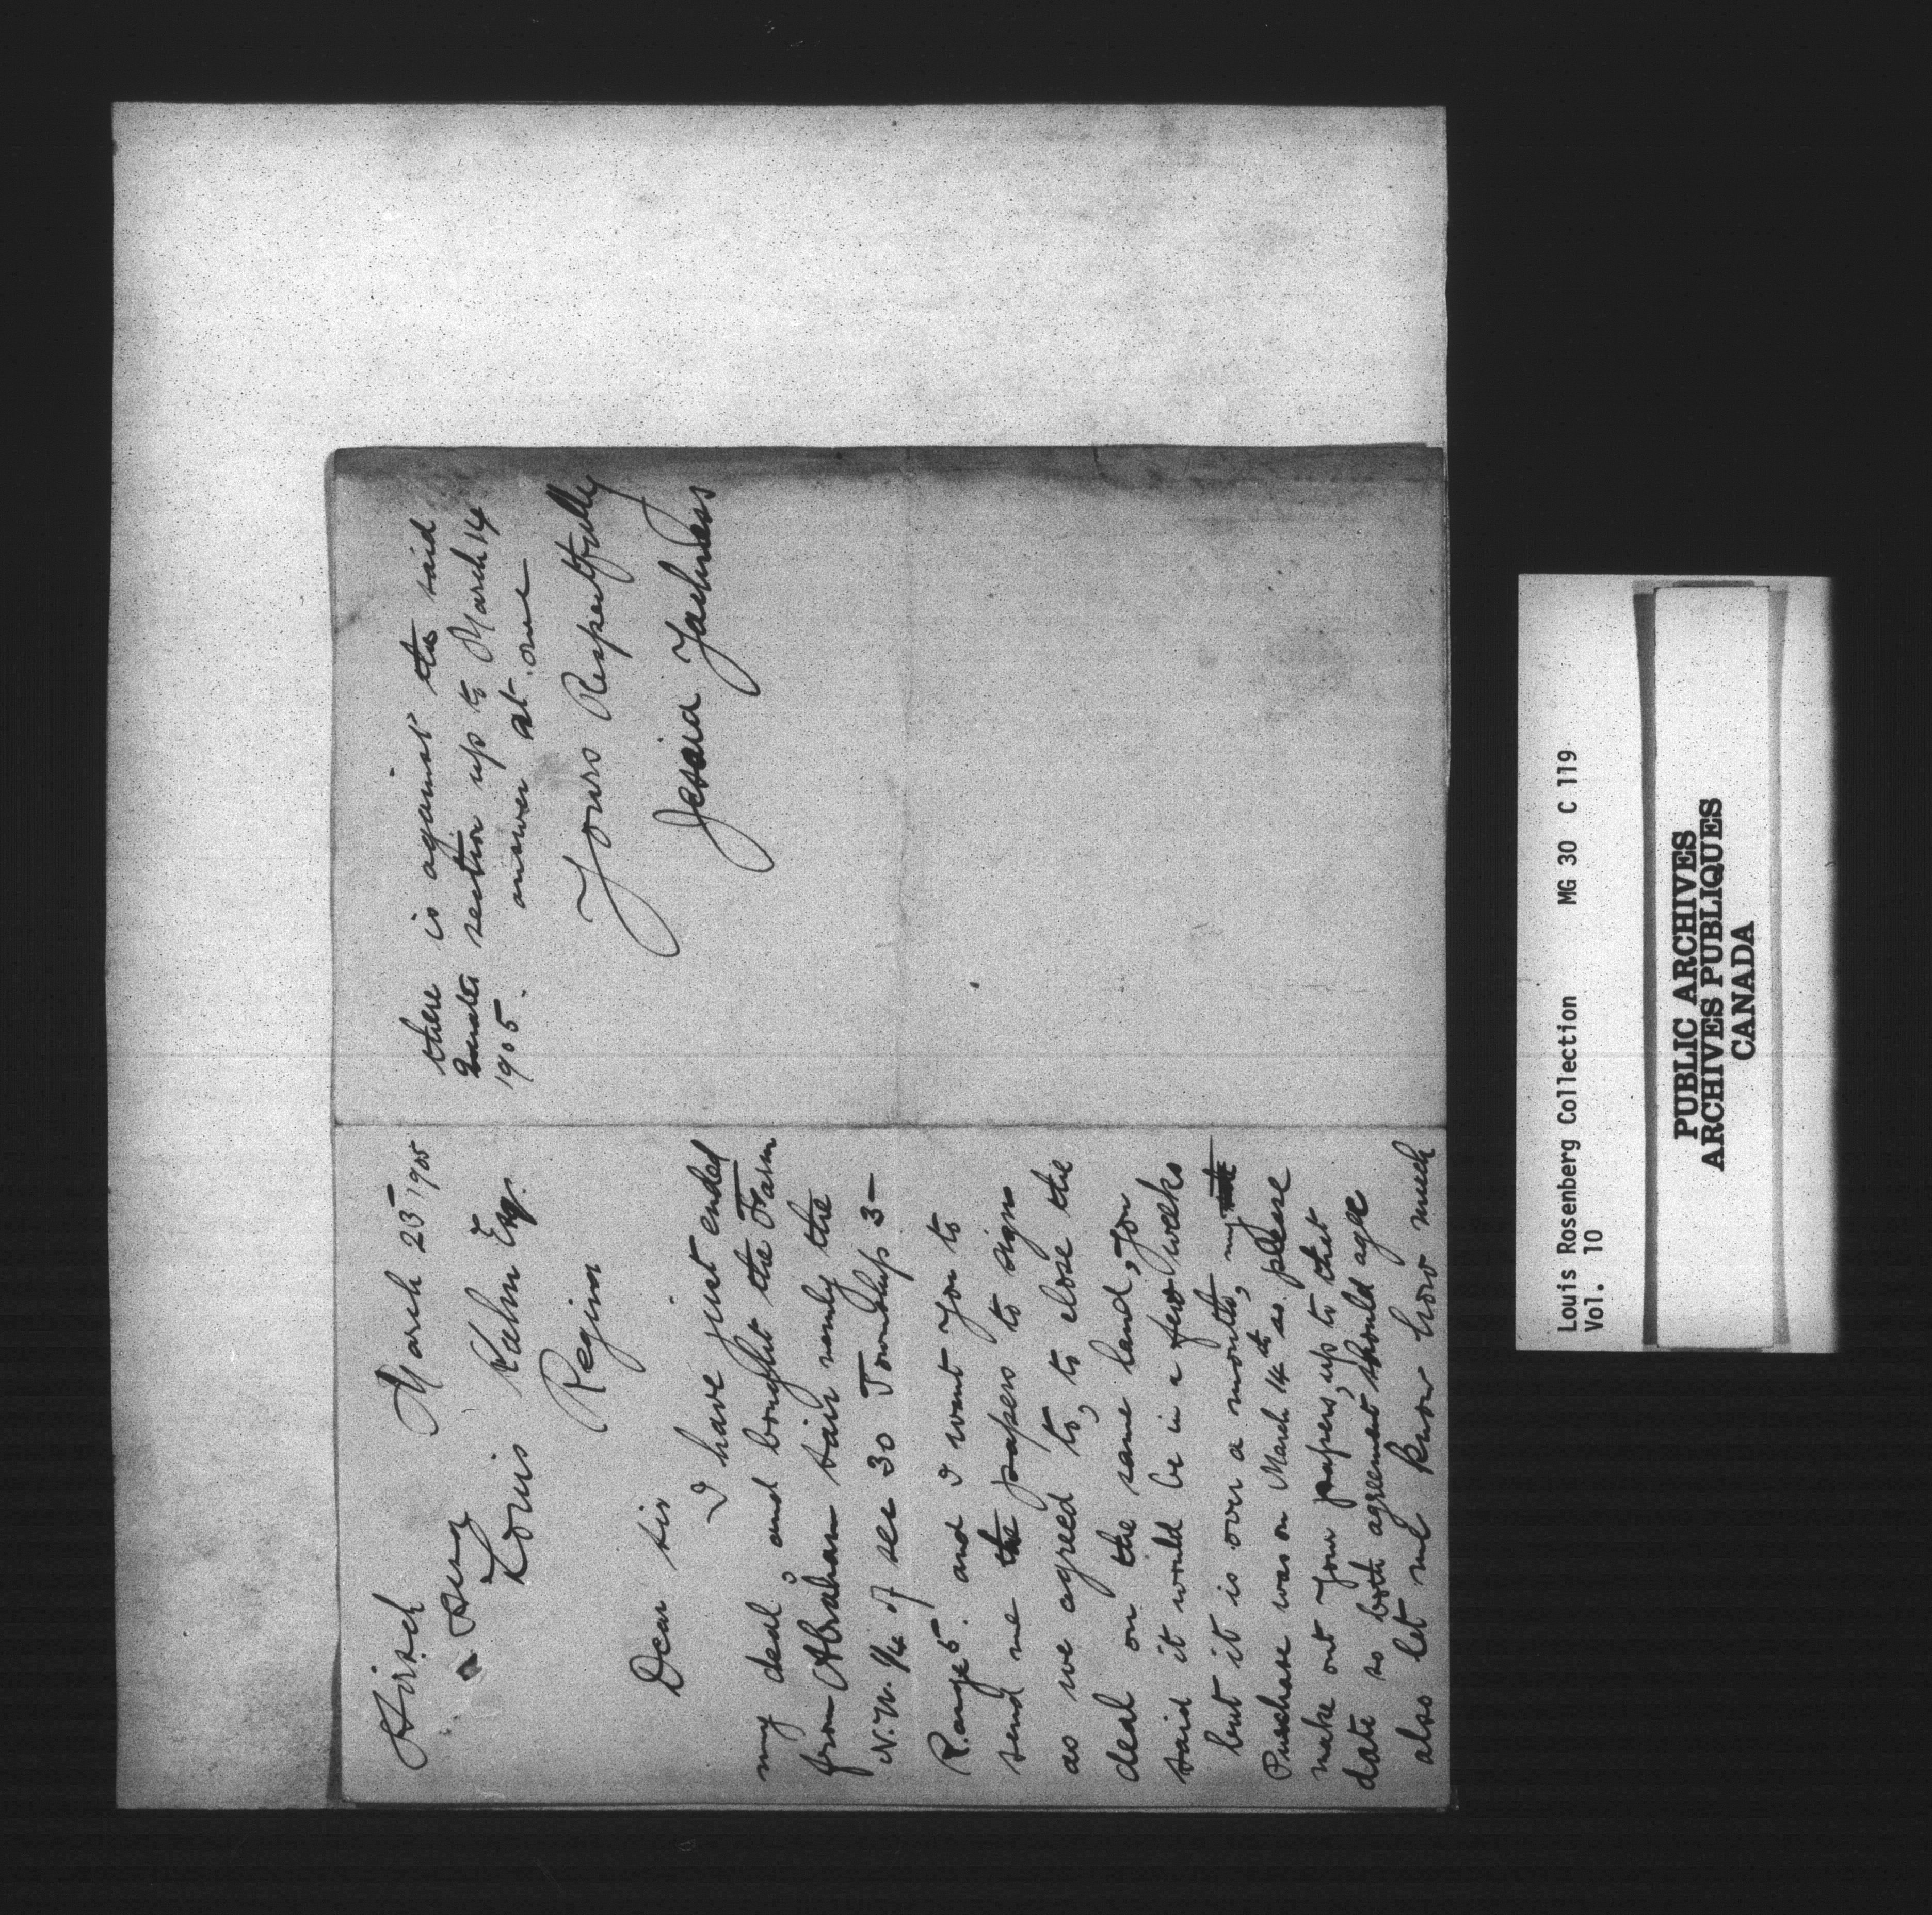 Hirsch March 25 1905
Louis Kahn Esq.
Regina
Dear sir
I have just ended
my deal, and bought the Farm
from Abraham namly the
N.W. 1/4 of sec 30 Township 3-
Range 5. and I want you to
send me the papers to sign
as we agreed to, to close the
deal on the same land, you
said it would be in a few weeks
but it is over a month, my
Purchase was on March 14th so please
make out your papers, up to that
date so both agreement should agee
also let me know how much
there is against the said
section up to March 14
1905. answer at once
Yours Respectfully
Louis Rosenberg Collection MG 30 C 119
Vol. 10
PUBLIC ARCHIVES
ARCHIVES PUBLIQUES
CANADA